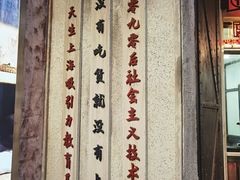 零九零后社会主义技术
没有吃货就没有
天生上海吸引力教育